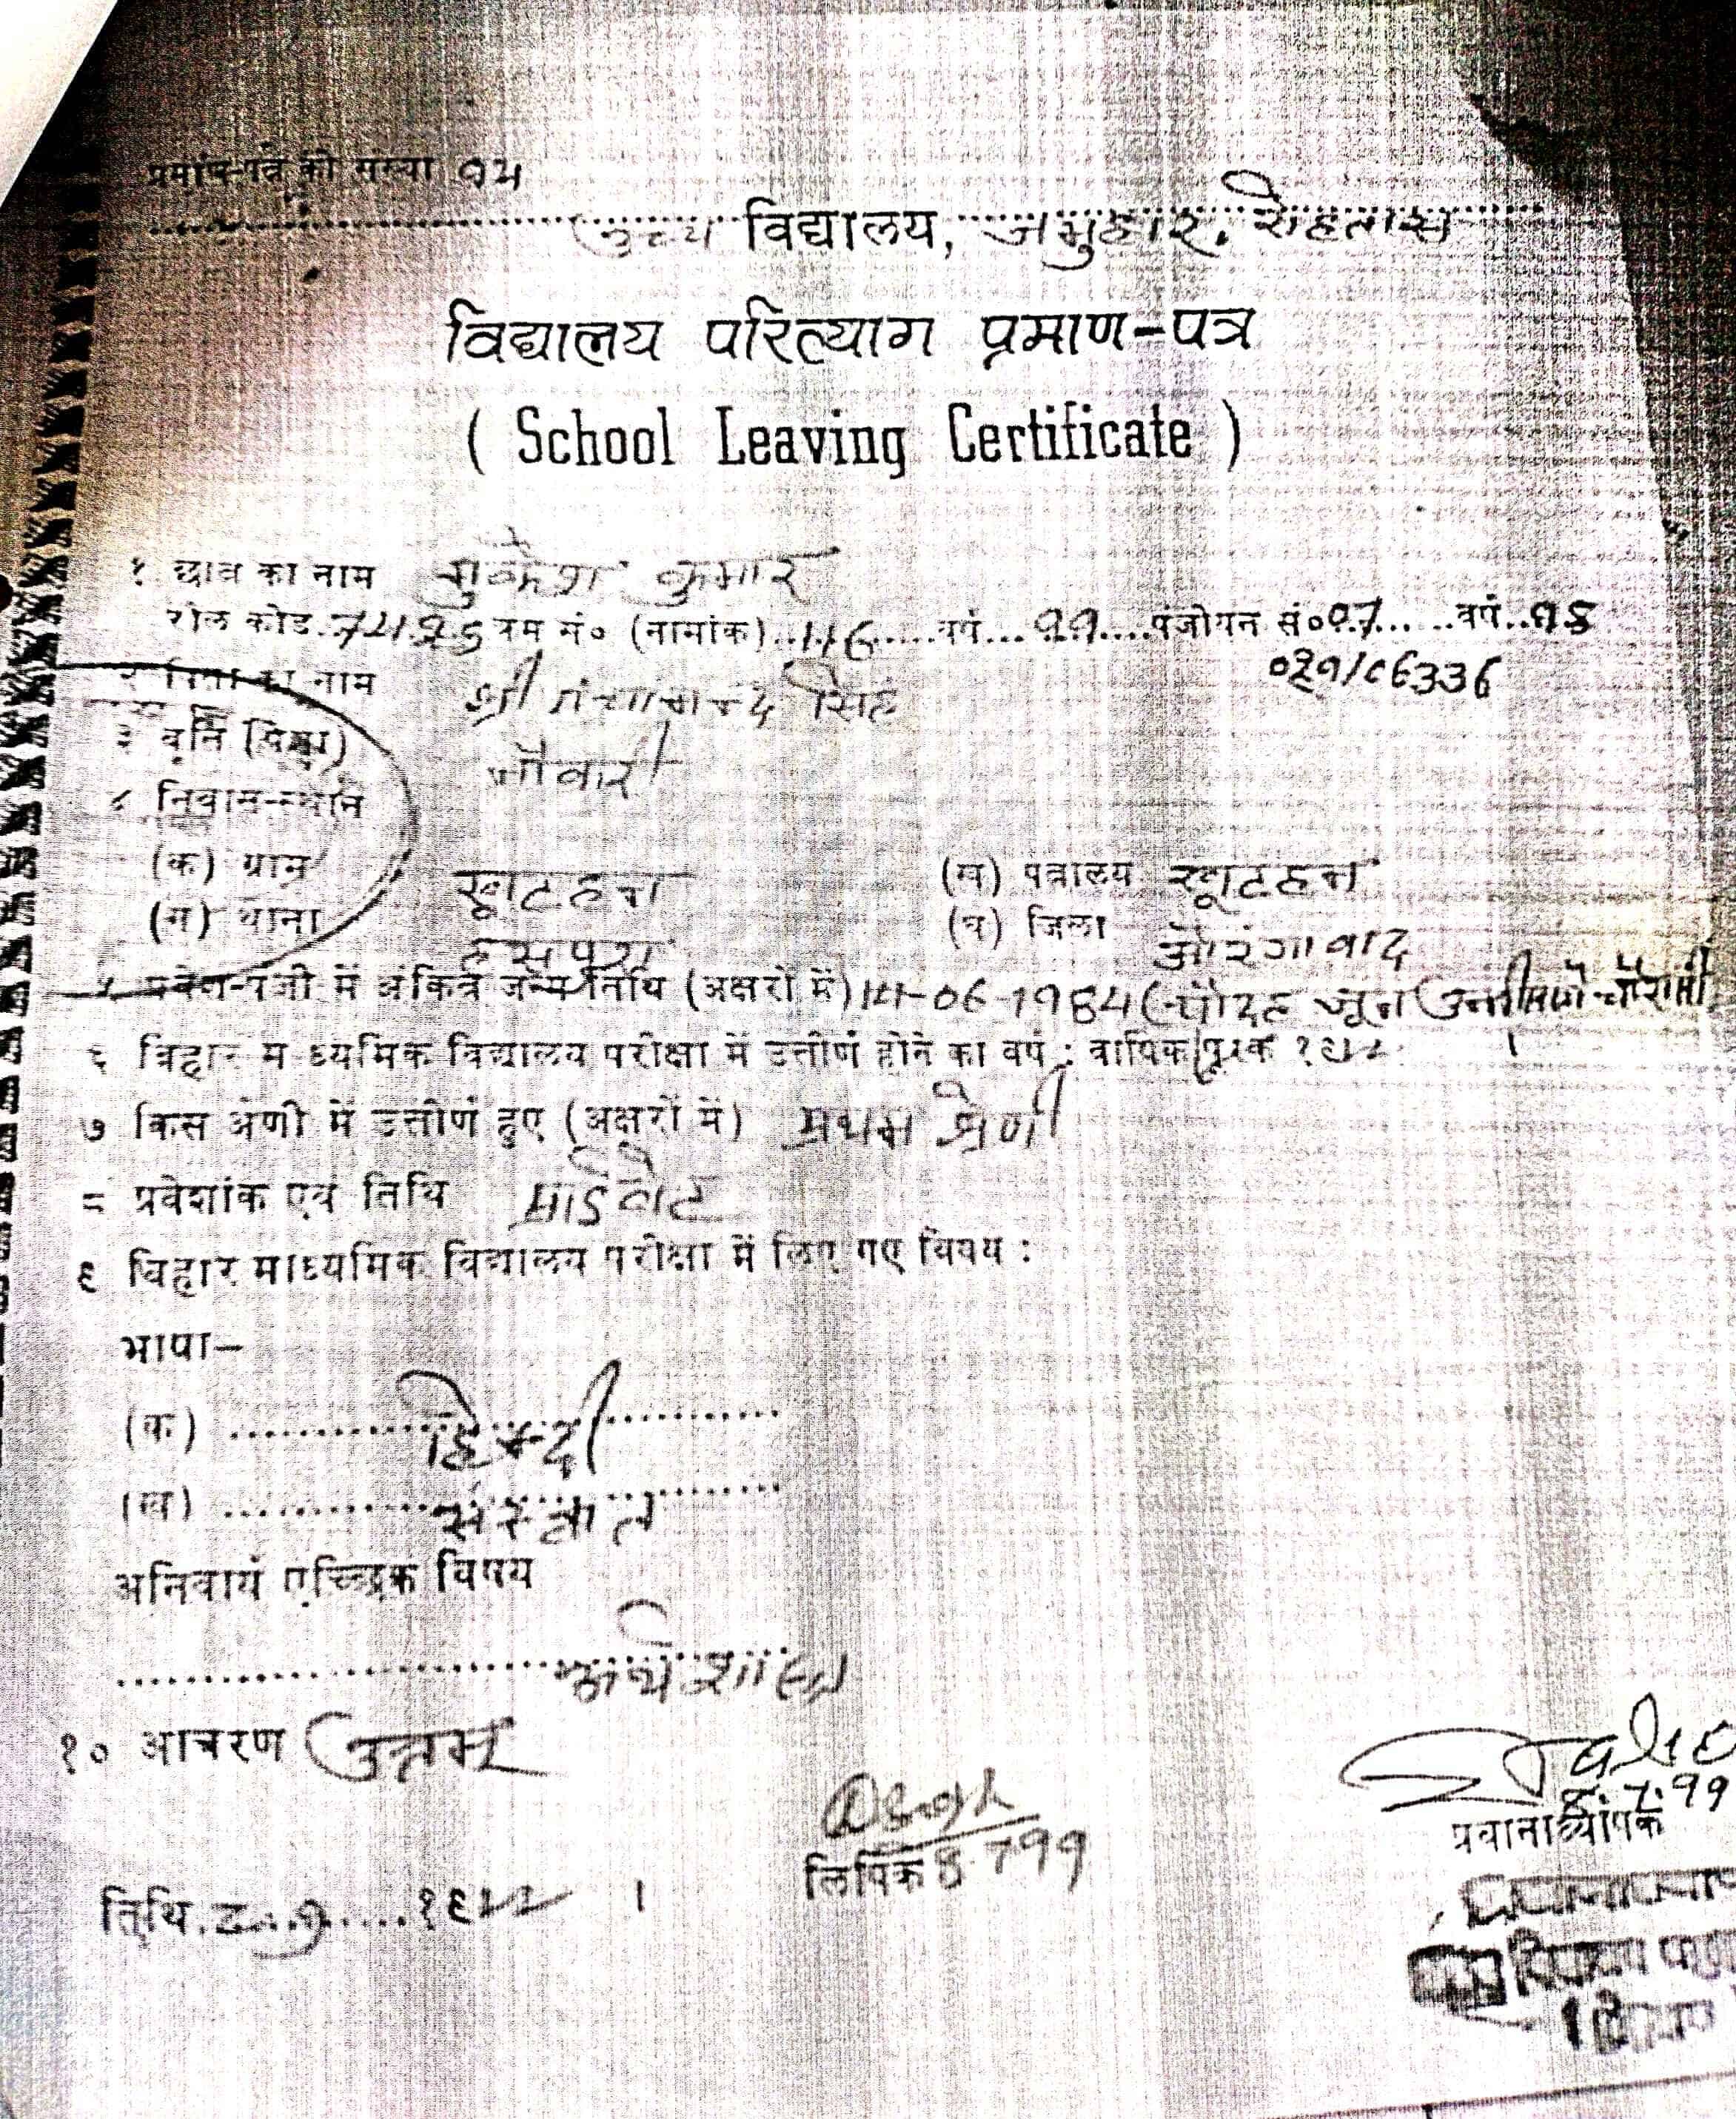 प्रमाण-पत्र की संख्या 94
उच्च विद्यालय, जमुहार, रोहतास
विद्यालय परित्याग प्रमाण-पत्र
( School Leaving Certificate )
१ छात्र का नाम मुकेश कुमार
रोल कोड क्रम सं० (नामांक) 116 वर्ष 99 पंजीयन सं० 97 वर्ष 98
/06336
२ पिता का नाम श्री सिंह
३ वृत्ति (पिता)
४ निवास-स्थान
(क) ग्राम खूटहन (ख) पत्रालय खूटहन
(ग) थाना हसपुरा (घ) जिला औरंगाबाद
५ प्रवेश-पंजी में अंकित जन्म तिथि (अक्षरों में) 14-06-1984 (चौदह जून उन्नीस सौ चौरासी
६ बिहार माध्यमिक विद्यालय परीक्षा में उत्तीर्ण होने का वर्ष : वार्षिक/पूरक १९९९ ।
७ किस श्रेणी में उत्तीर्ण हुए (अक्षरों में) प्रथम श्रेणी
८ प्रवेशांक एवं तिथि प्राईवेट
९ बिहार माध्यमिक विद्यालय परीक्षा में लिए गए विषय :
भाषा—
(क) हिन्दी
(ख) संस्कृत
अनिवार्य एच्छिक विषय
अर्थशास्त्र
१० आचरण उत्तम
8.7.99
प्रधानाध्यापक
लिपिक 8.7.99
तिथि ८.७. १९९९ ।